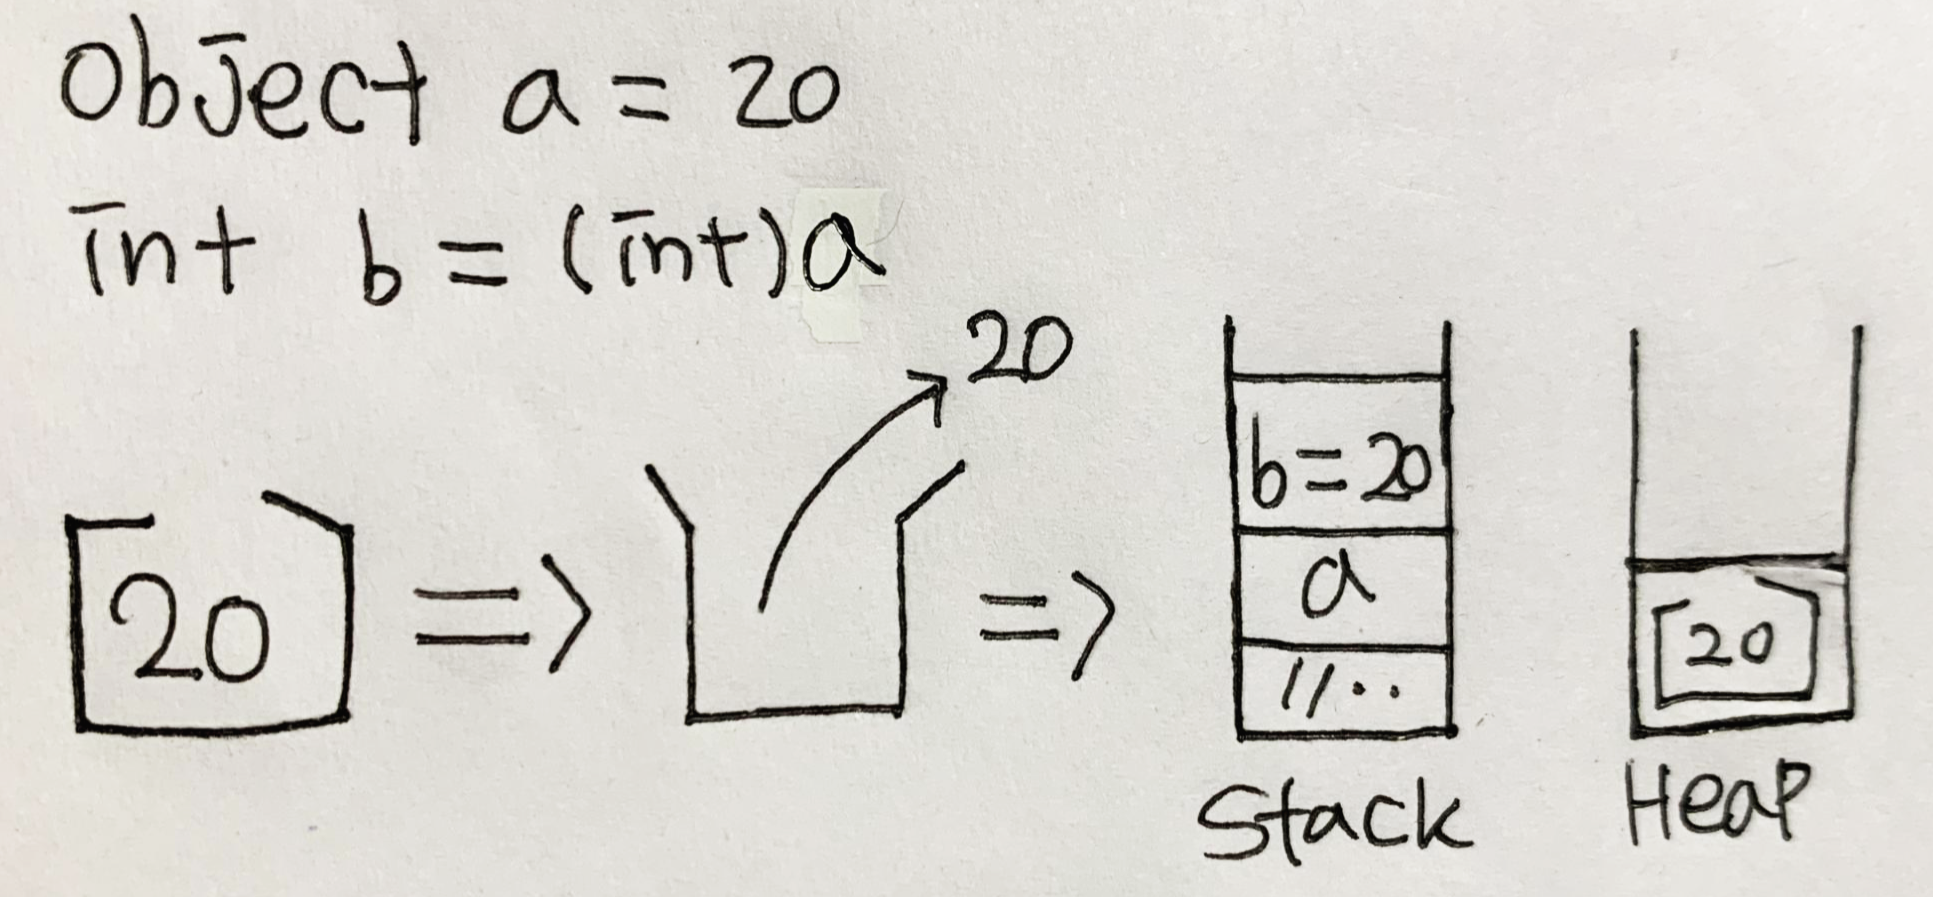 Object a = 20
int b = (int)a
20
20 => => 
b = 20
a
//..
20
Stack
Heap